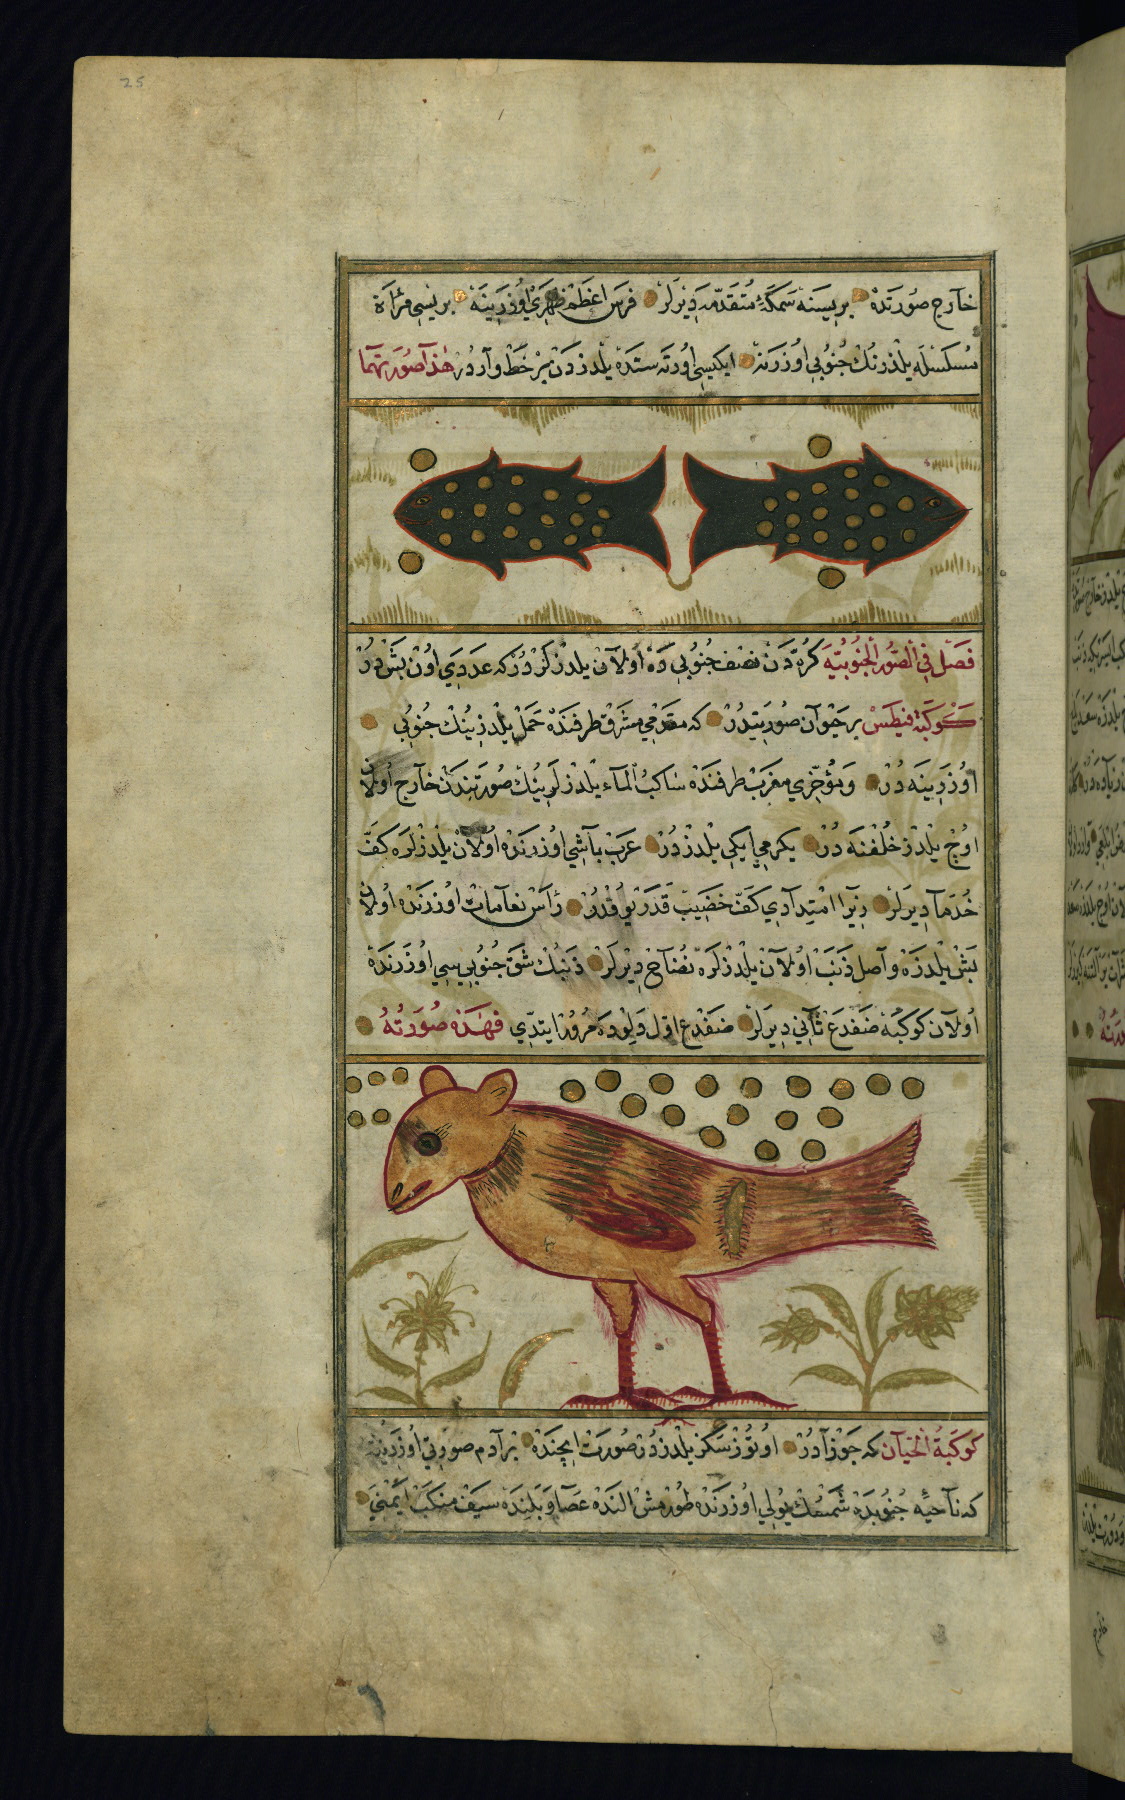 25
خارج صورتده بریسنه سمكهٔ متقدمه دیرلر فرس اعظم ظهری اوزرینه بریسی مرأة
مسلسله یلدزنك جنوبی اوزرنه ایكیسی اورته سنده یلدزدن بر خط واردر هذا صورتهما
فصل فی الصور الجنوبیه كره دن نصف جنوبی ده اولان یلدزلردركه عددی اون بشدر
كوكبة قیطس بر حیوان صورتیدر كه مقدمی مشرق طرفنده حمل یلدزینك جنوبی
اوزرینه در ومؤخری مغرب طرفنده ساكب الماء یلدزلرینك صورتندن خارج اولان
اوچ یلدز خلفنه در یكرمی ایكی یلدزدر عرب باشی اوزرنده اولان یلدزلره كف
جذما دیرلر زیرا امتدادی كف خضیب قدر یوقدر رأس نعامات اوزرنده اولان
بش یلدزه واصل ذنب اولان یلدزلره دیرلر ذنبك شق جنوبیسی اوزرنده
اولان كوكبه ضفدع ثانی دیرلر ضفدع اول دلوده مرور ایتدی فهذه صورته
كوكبة كه جوزادر اوتوز سكز یلدزدر صورت ایچنده بر آدم صورتی اوزرینه
كه ناحیهٔ جنوبده شمسك یولی اوزرنده طورمش النده عصا وبلنده سیف منكب ایمنی